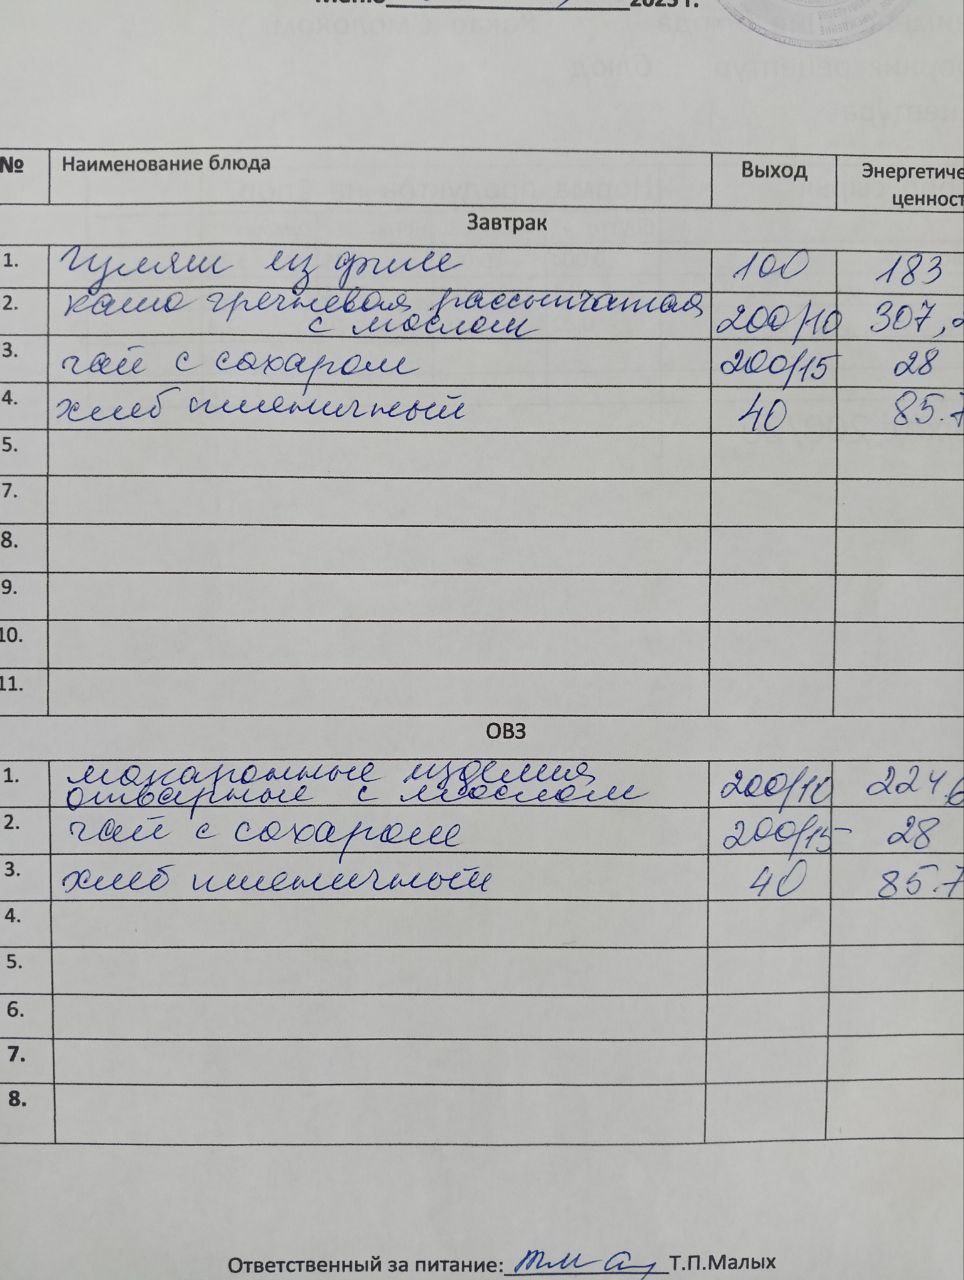 Меню 2023 г.
№ Наименование блюда Выход Энергетиче
ценност
Завтрак
1. гуляш из филе 100 183
2. каша гречневая рассыпчатая
с маслом 200/10 307,2
3. чай с сахаром 200/15 28
4. хлеб пшеничный 40 85.7
5.
7.
8.
9.
10.
11.
ОВЗ
1. макаронные изделия
отварные с маслом 200/10 224,6
2. чай с сахаром 200/15 28
3. хлеб пшеничный 40 85.7
4.
5.
6.
7.
8.
Ответственный за питание: Т.П.Малых